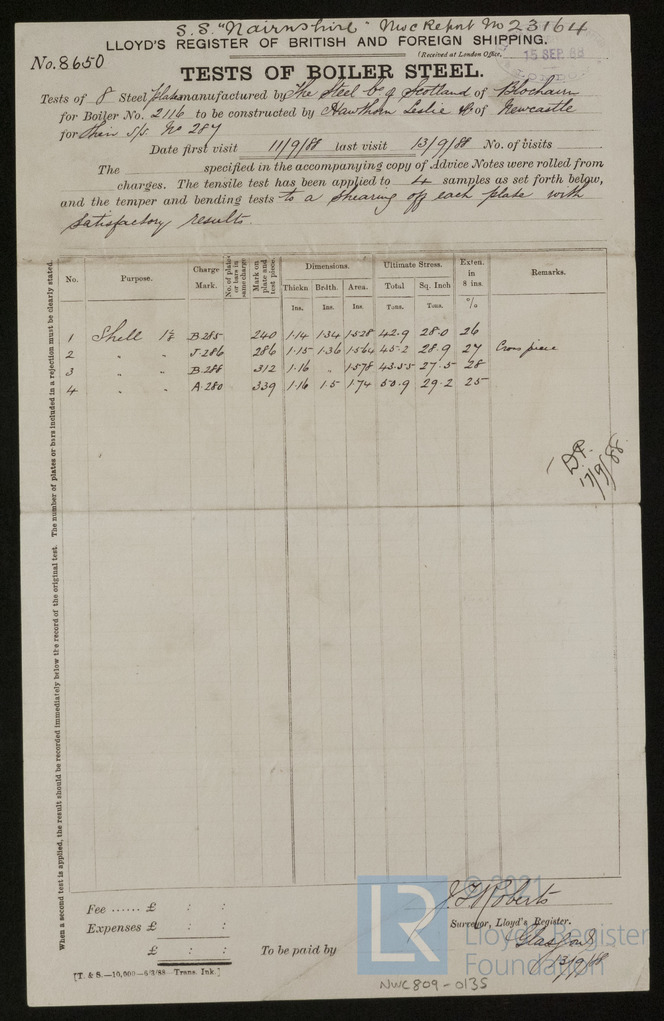 S.S. "Nairnshire" Nwc Report No 23164
LLOYD'S REGISTER OF BRITISH AND FOREIGN SHIPPING.
No. 8650
(Received at London Office,
15 SEP. 88
TESTS OF BOILER STEEL.
Tests of 8 Steel plates manufactured by The Steel Co of Scotland of Blochairn
for Boiler No. 2116 to be constructed by Hawthorn Leslie & Co of Newcastle
for their S/S No 287
Date first visit 11/9/88 last visit 13/9/88 No. of visits
The specified in the accompanying copy of Advice Notes were rolled from
charges. The tensile test has been applied to 4 samples as set forth below,
and the temper and bending tests to a shearing off each plate with
satisfactory results.
No. Purpose. Charge Mark. No. of plates or bars in same charge Mark on plate and test piece. Dimensions. Ultimate Stress. Exten. in 8 ins. Remarks.
Thickn Brdth. Area. Total Sq. Inch
Ins. Ins. Ins. Tons. Tons. %
1 Shell 1⅛ B.285 240 1.14 1.34 1.528 42.9 28.0 26
2 " " J.286 286 1.15 1.36 1.564 45.2 28.9 27 Cross piece
3 " " B.288 312 1.16 " 1.578 43.55 27.5 28
4 " " A.280 339 1.16 1.5 1.74 50.9 29.2 25
17/9/88
When a second test is applied, the result should be recorded immediately below the record of the original test. The number of plates or bars included in a rejection must be clearly stated.
Fee ...... £ : :
Expenses £ : :
£ : :
To be paid by
J. T. Roberts
Surveyor, Lloyd's Register.
Glasgow
13/9/88
[T. & S.—10,000—6/3/88—Trans. Ink.]
LR
© 2021
Lloyd's Register
Foundation
NWC809-0135